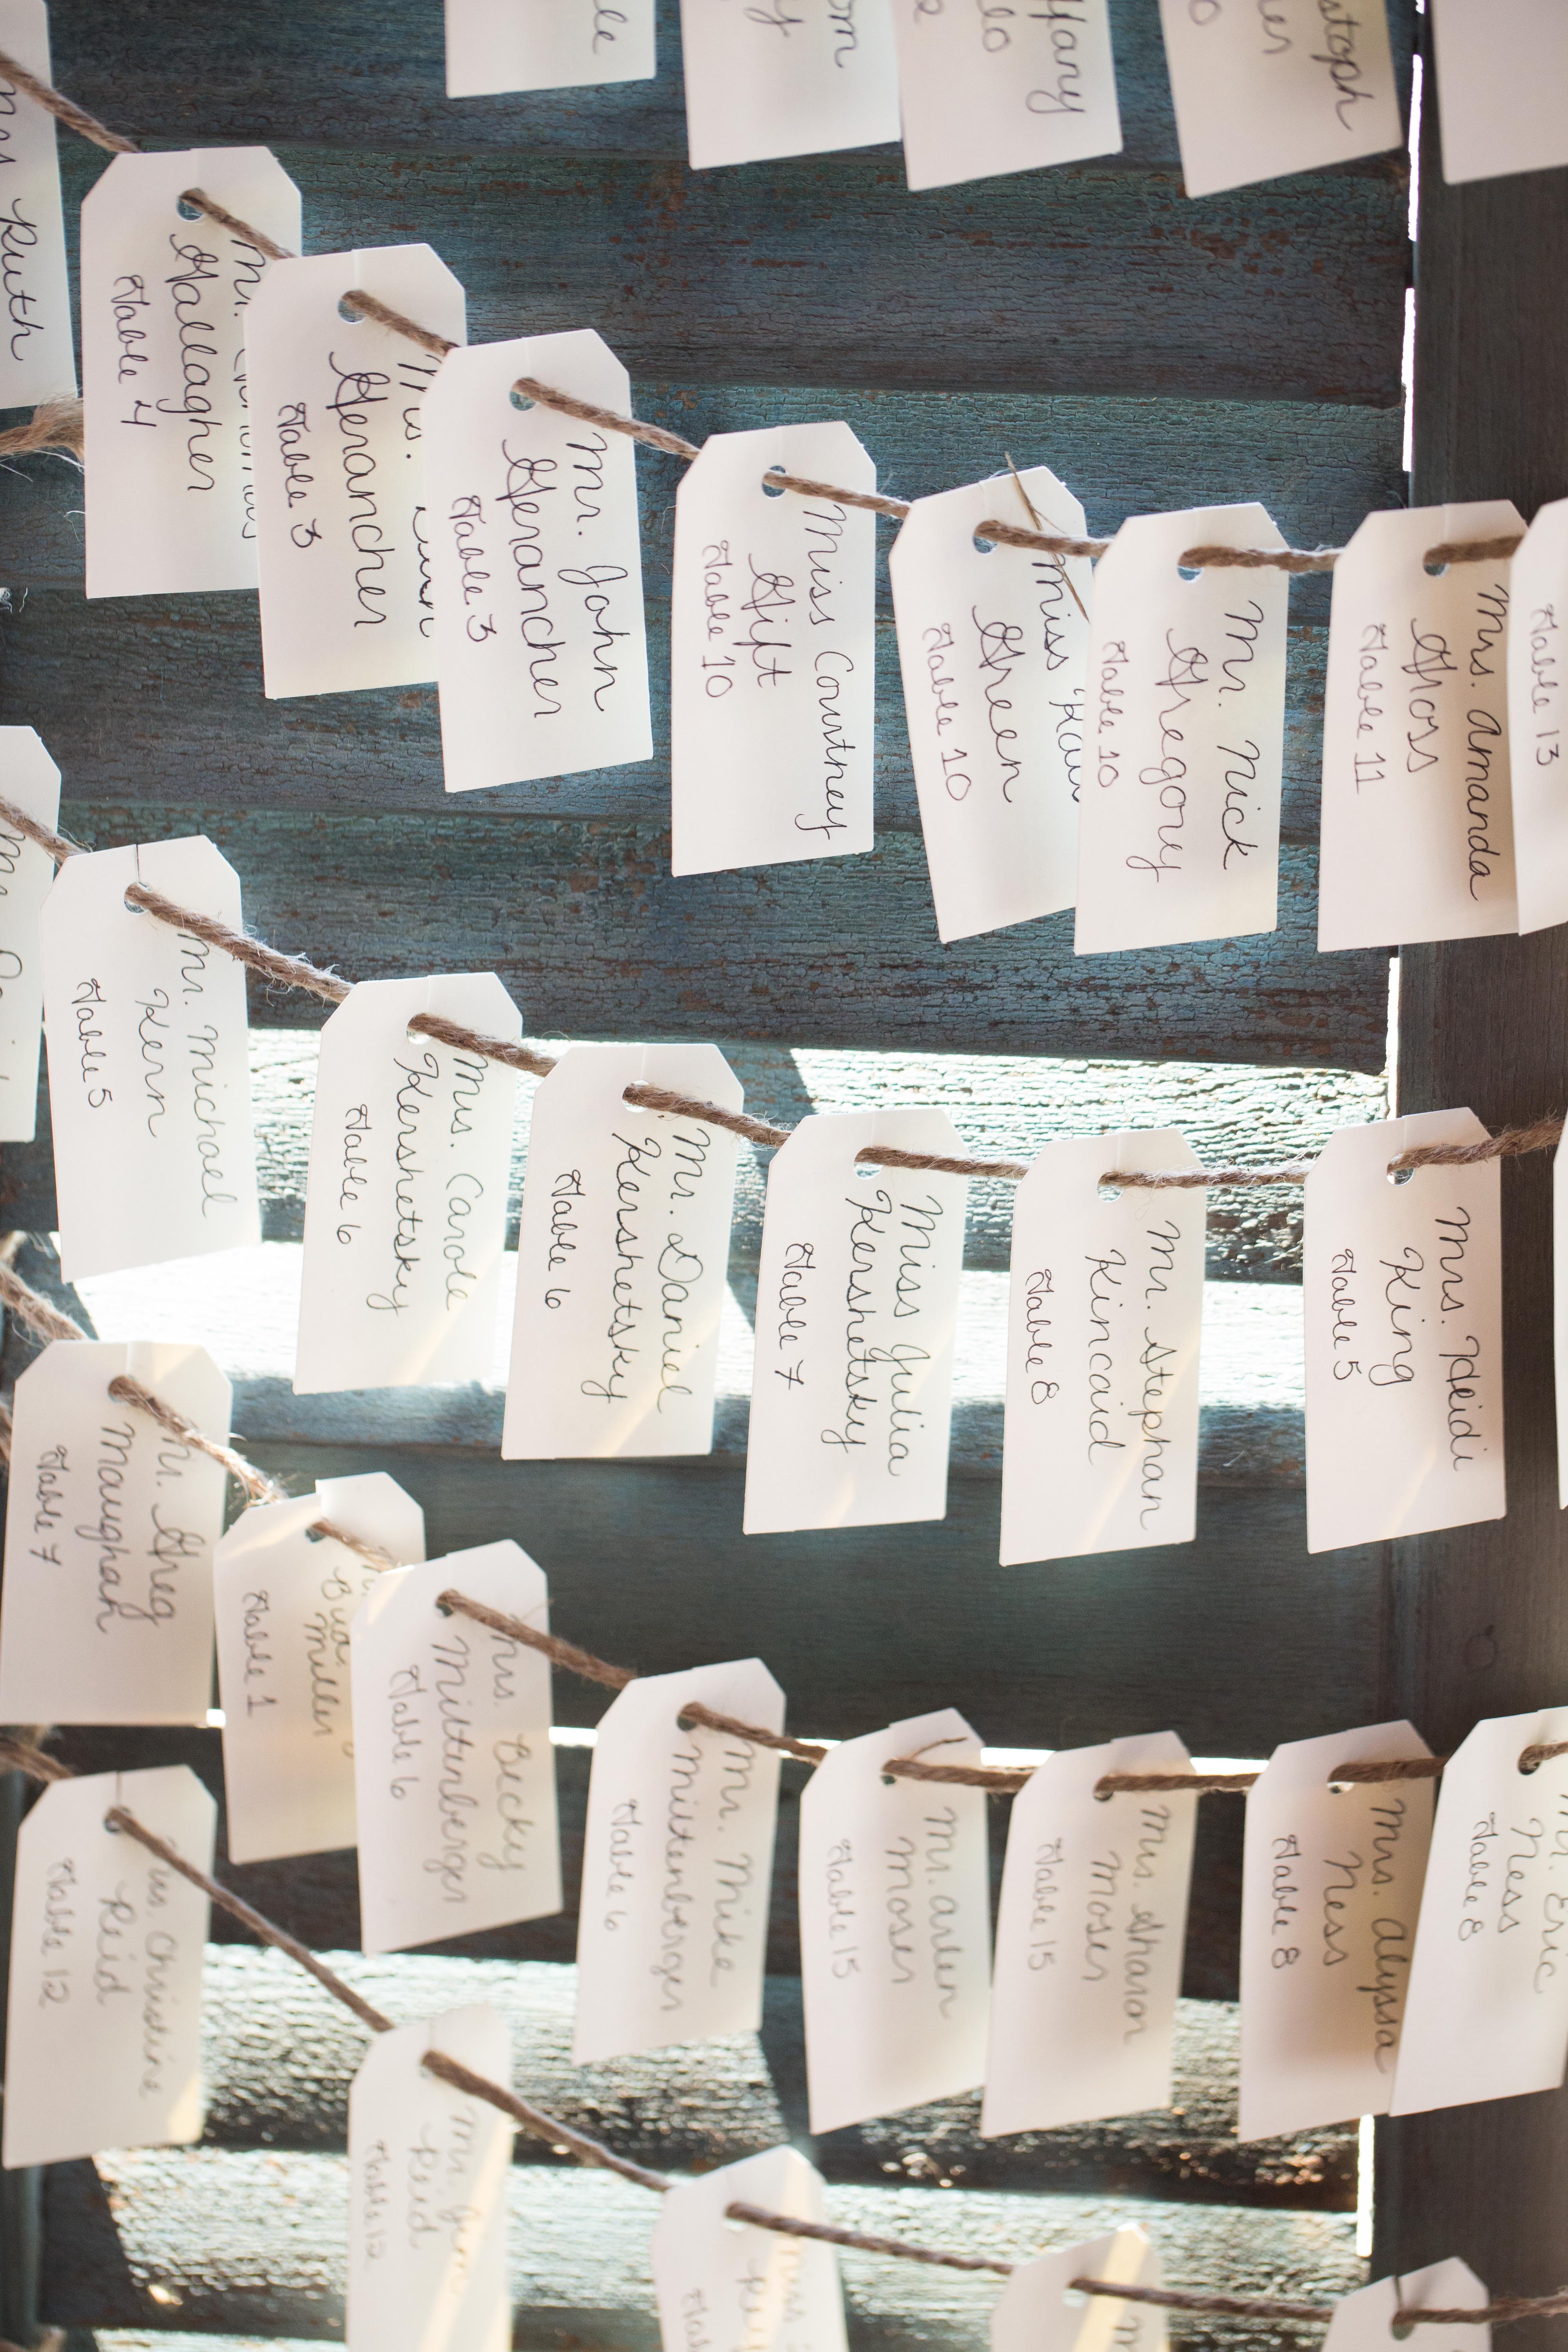 le
om
y
Hany
lo
2
stoph
es
0
Mrs Ruth
Mr.
Gallagher
Table 4
Mrs.
Gerancher
Table 3
Mr. John
Gerancher
Table 3
Miss Courtney
Gift
Table 10
Miss
Green
Table 10
Mr. Nick
Gregory
Table 10
Mrs. Amanda
Gross
Table 11
Table 13
Mr. Michael
Kern
Table 5
Mrs. Carole
Kershetsky
Table 6
Mr. Daniel
Kershetsky
Table 6
Miss Julia
Kershetsky
Table 7
Mr. Stephan
Kincaid
Table 8
Mrs. Heidi
King
Table 5
Mr. Greg
Maughan
Table 7
Miller
Table 1
Mrs. Becky
Mittenberger
Table 6
Mr. Mike
Mittenberger
Table 6
Mr. Arlen
Moser
Table 15
Mrs. Sharon
Moser
Table 15
Mrs. Alyssa
Ness
Table 8
Mr. Eric
Ness
Table 8
Mrs. Christine
Reid
Table 12
Mr. Jim
Reid
Table 12
Miss